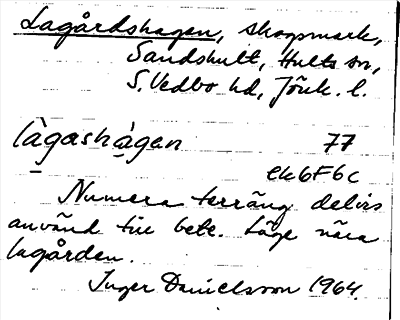 Lagårdshagen, skogsmark,
Sandshult, Hults sn,
S. Vedbo hd, Jönk. l.
làgashàgen 77
ek6F6c
Numera terräng delvis
använd till bete. Läge nära
lagården.
Inger Danielsson 1964.